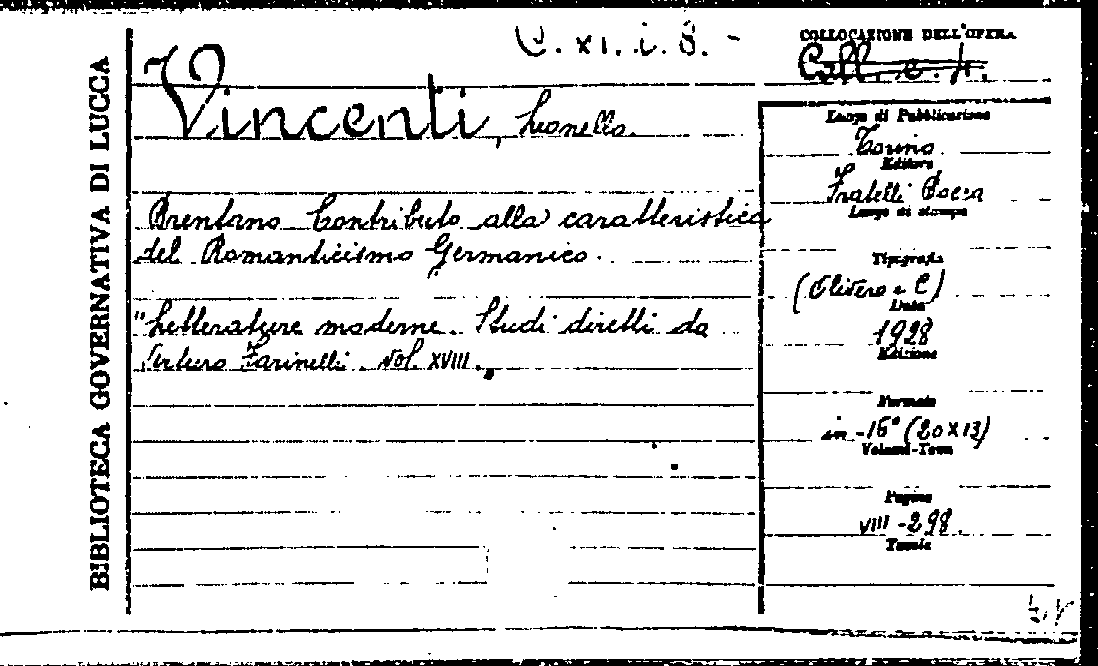 C. XI. i. 8. -
COLLOCAZIONE DELL'OPERA
Coll. c. 4.
BIBLIOTECA GOVERNATIVA DI LUCCA
Vincenti, Lionello.
Brentano Contributo alla caratteristica
del Romanticismo Germanico.
"Letterature moderne. Studi diretti da
Arturo Farinelli. Vol. XVIII.
Luogo di Pubblicazione
Torino
Editore
Fratelli Bocca
Luogo di stampa
Tipografia
(Olivero e C)
Data
1928
Edizione
Formato
in-16° (20x13)
Volumi-Tomi
Pagine
VIII-298.
Tavole